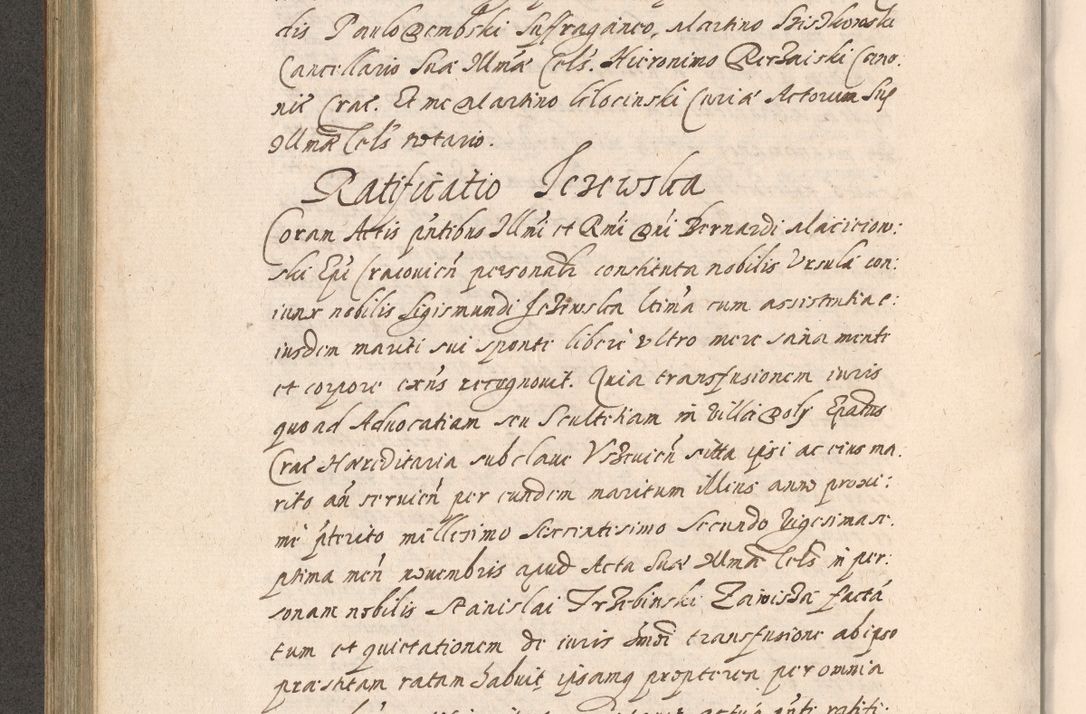 ctis Paulo Dembski Suffraganeo, Martino Szyszkowski
Cancellario Suæ Illmæ Cels. Hieronimo Rerzaiski Cano:
nic Crac. Et me Martino Glocinski Curiæ Actorum Suę
Illmæ Cels notario.
Ratificatio Jezewska
Coram Actis pntibus Illmi et Rmi Dni Bernardi Macieiow:
ski Epi Cracovień personalr constituta nobilis Ursula con:
iunx nobilis Sigismundi Jezewska ltima cum assistentia e:
iusdem mariti sui sponte libere vltro mere sana mente
et corpore exns recognouit. Quia transfusionem iuris
quoad Aduocatiam seu Scultetiam in villa Epatus
Crac Hæreditaria sub claue Uszeuień sitta ipsi ac eius ma:
rito ań seruień per eundem maritum illius anno proxi:
me pterito millesimo sexcentesimo secundo vigesima se:
ptima meń nouembris apud Acta Suæ Illmæ Cels in per:
sonam nobilis Stanislai Trzebinski Zawisza factá
tum et quietationem de iuris transfusione ab ipso
præstitam ratam habuit ipsamq propterea per omnia